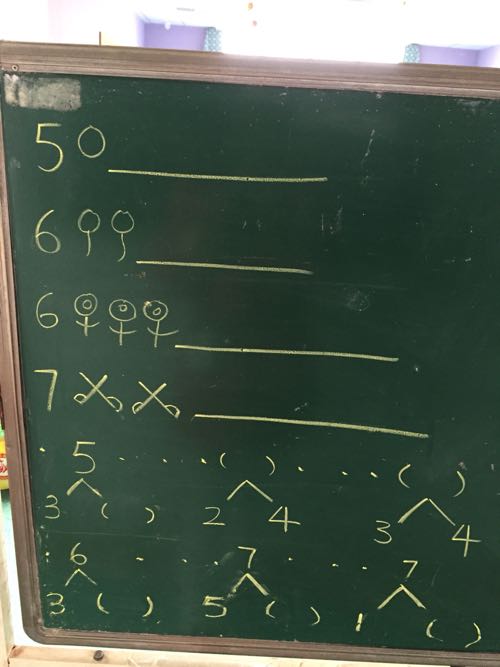 5 ○ ____
6 ____
6 ____
7 ____
5 ( ) ( )
3 ( ) 2 4 3 4
6 7 7
3 ( ) 5 ( ) 1 ( )